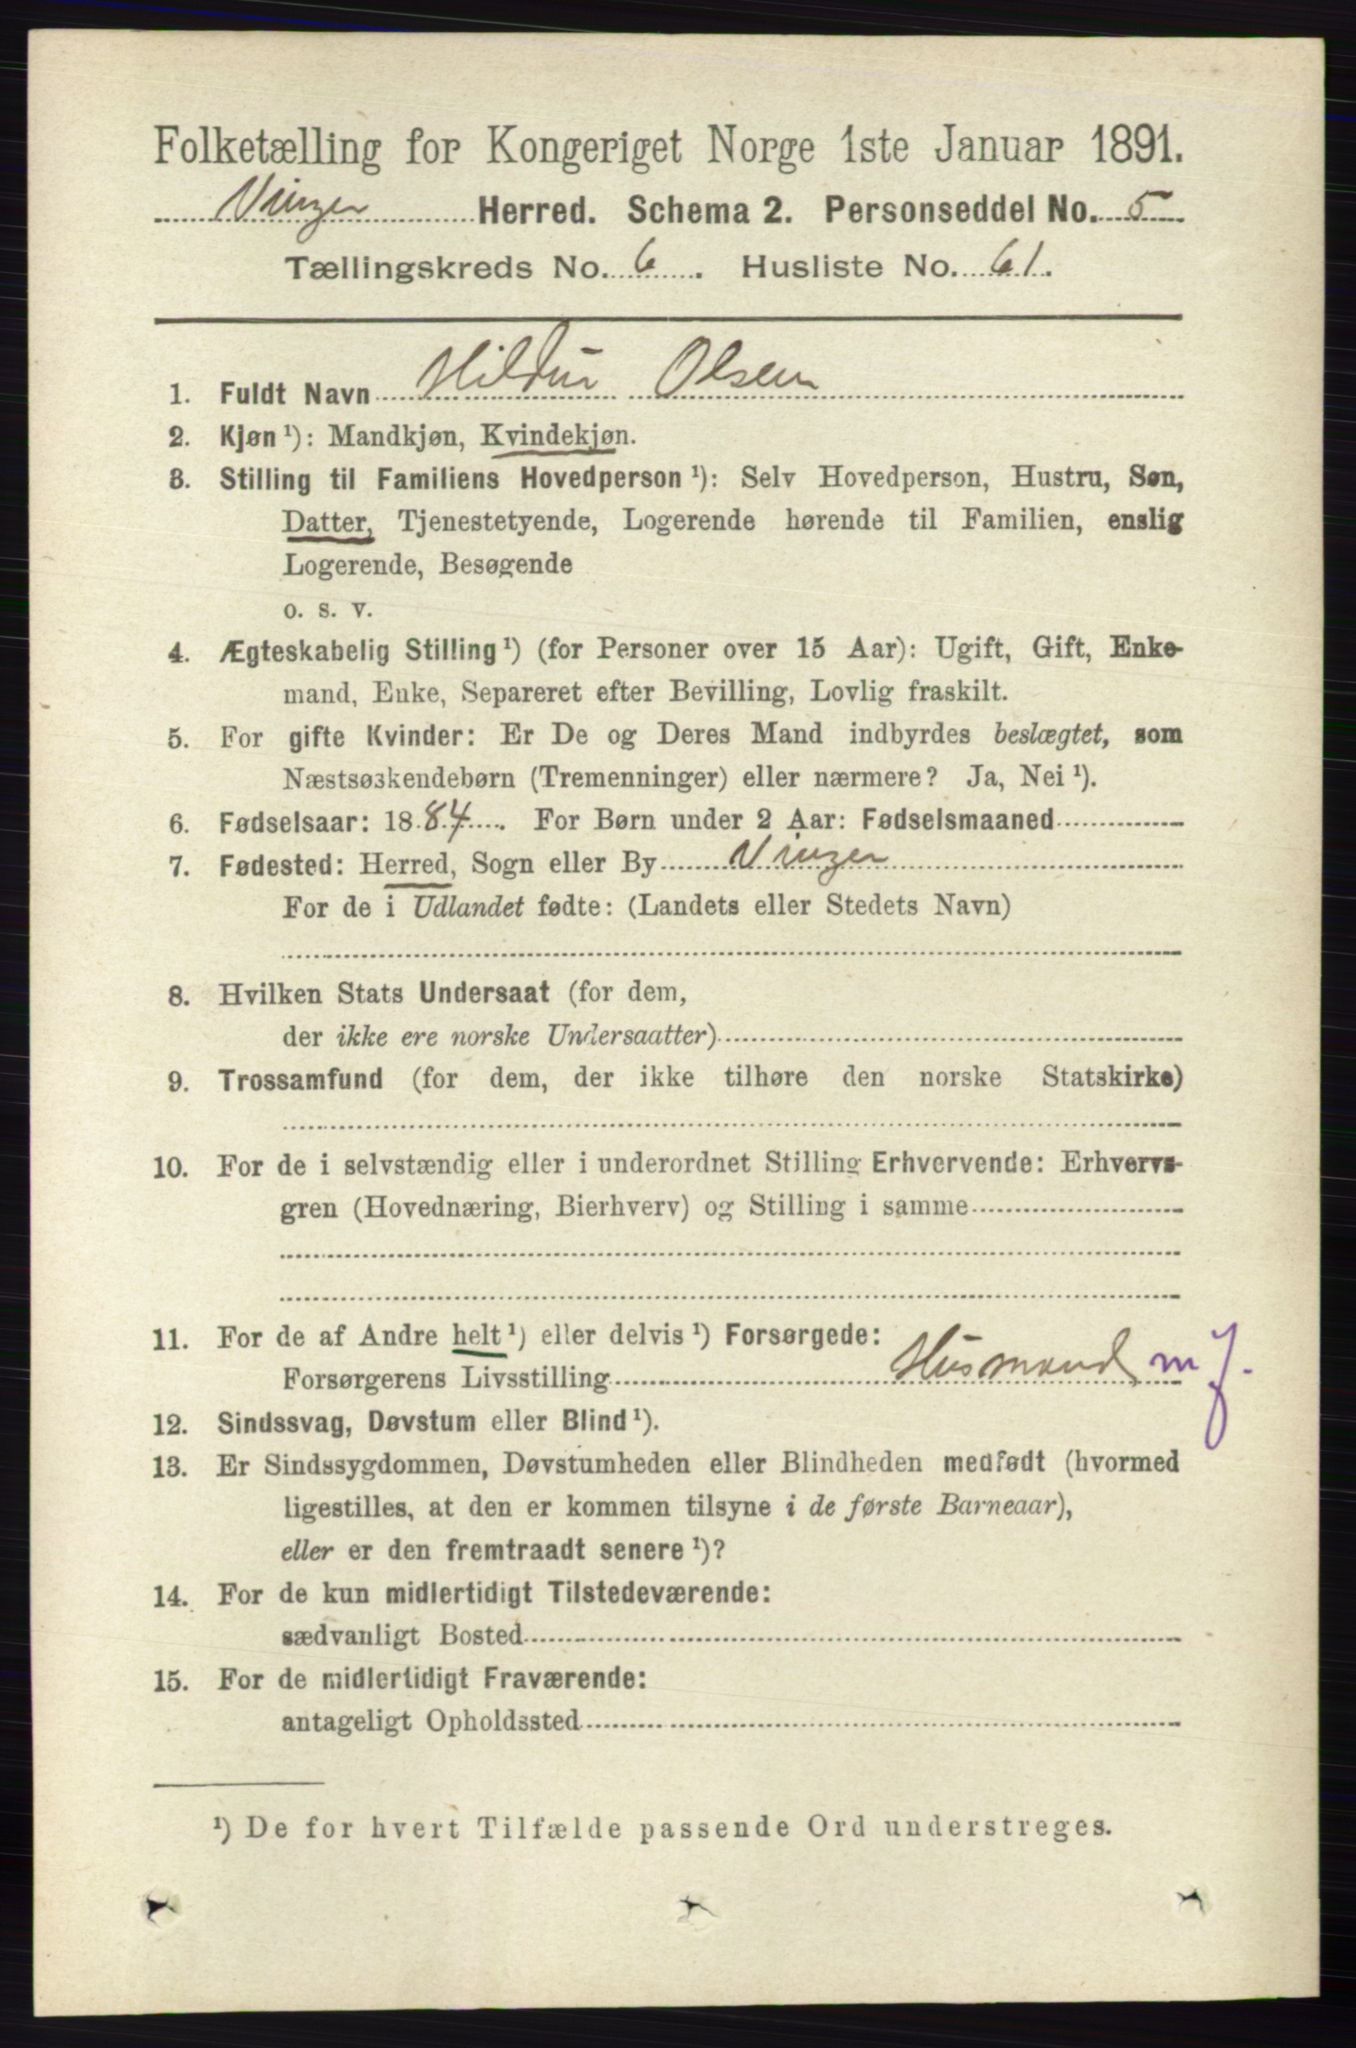 Folketælling for Kongeriget Norge 1ste Januar 1891.
Vinger Herred. Schema 2. Personseddel No. 5
Tællingskreds No. 6. Husliste No. 61.
1. Fuldt Navn Hildur Olsen
2. Kjøn ¹): Mandkjøn, Kvindekjøn.
3. Stilling til Familiens Hovedperson ¹): Selv Hovedperson, Hustru, Søn,
Datter, Tjenestetyende, Logerende hørende til Familien, enslig
Logerende, Besøgende
o. s. v.
4. Ægteskabelig Stilling ¹) (for Personer over 15 Aar): Ugift, Gift, Enke-
mand, Enke, Separeret efter Bevilling, Lovlig fraskilt.
5. For gifte Kvinder: Er De og Deres Mand indbyrdes beslægtet, som
Næstsøskendebørn (Tremenninger) eller nærmere? Ja, Nei ¹).
6. Fødselsaar: 1884. For Børn under 2 Aar: Fødselsmaaned
7. Fødested: Herred, Sogn eller By Vinger
For de i Udlandet fødte: (Landets eller Stedets Navn)
8. Hvilken Stats Undersaat (for dem,
der ikke ere norske Undersaatter)
9. Trossamfund (for dem, der ikke tilhøre den norske Statskirke)
10. For de i selvstændig eller i underordnet Stilling Erhvervende: Erhvervs-
gren (Hovednæring, Bierhverv) og Stilling i samme
11. For de af Andre helt ¹) eller delvis ¹) Forsørgede:
Forsørgerens Livsstilling Husmand m J.
12. Sindssvag, Døvstum eller Blind ¹).
13. Er Sindssygdommen, Døvstumheden eller Blindheden medfødt (hvormed
ligestilles, at den er kommen tilsyne i de første Barneaar),
eller er den fremtraadt senere ¹)?
14. For de kun midlertidigt Tilstedeværende:
sædvanligt Bosted
15. For de midlertidigt Fraværende:
antageligt Opholdssted
¹) De for hvert Tilfælde passende Ord understreges.